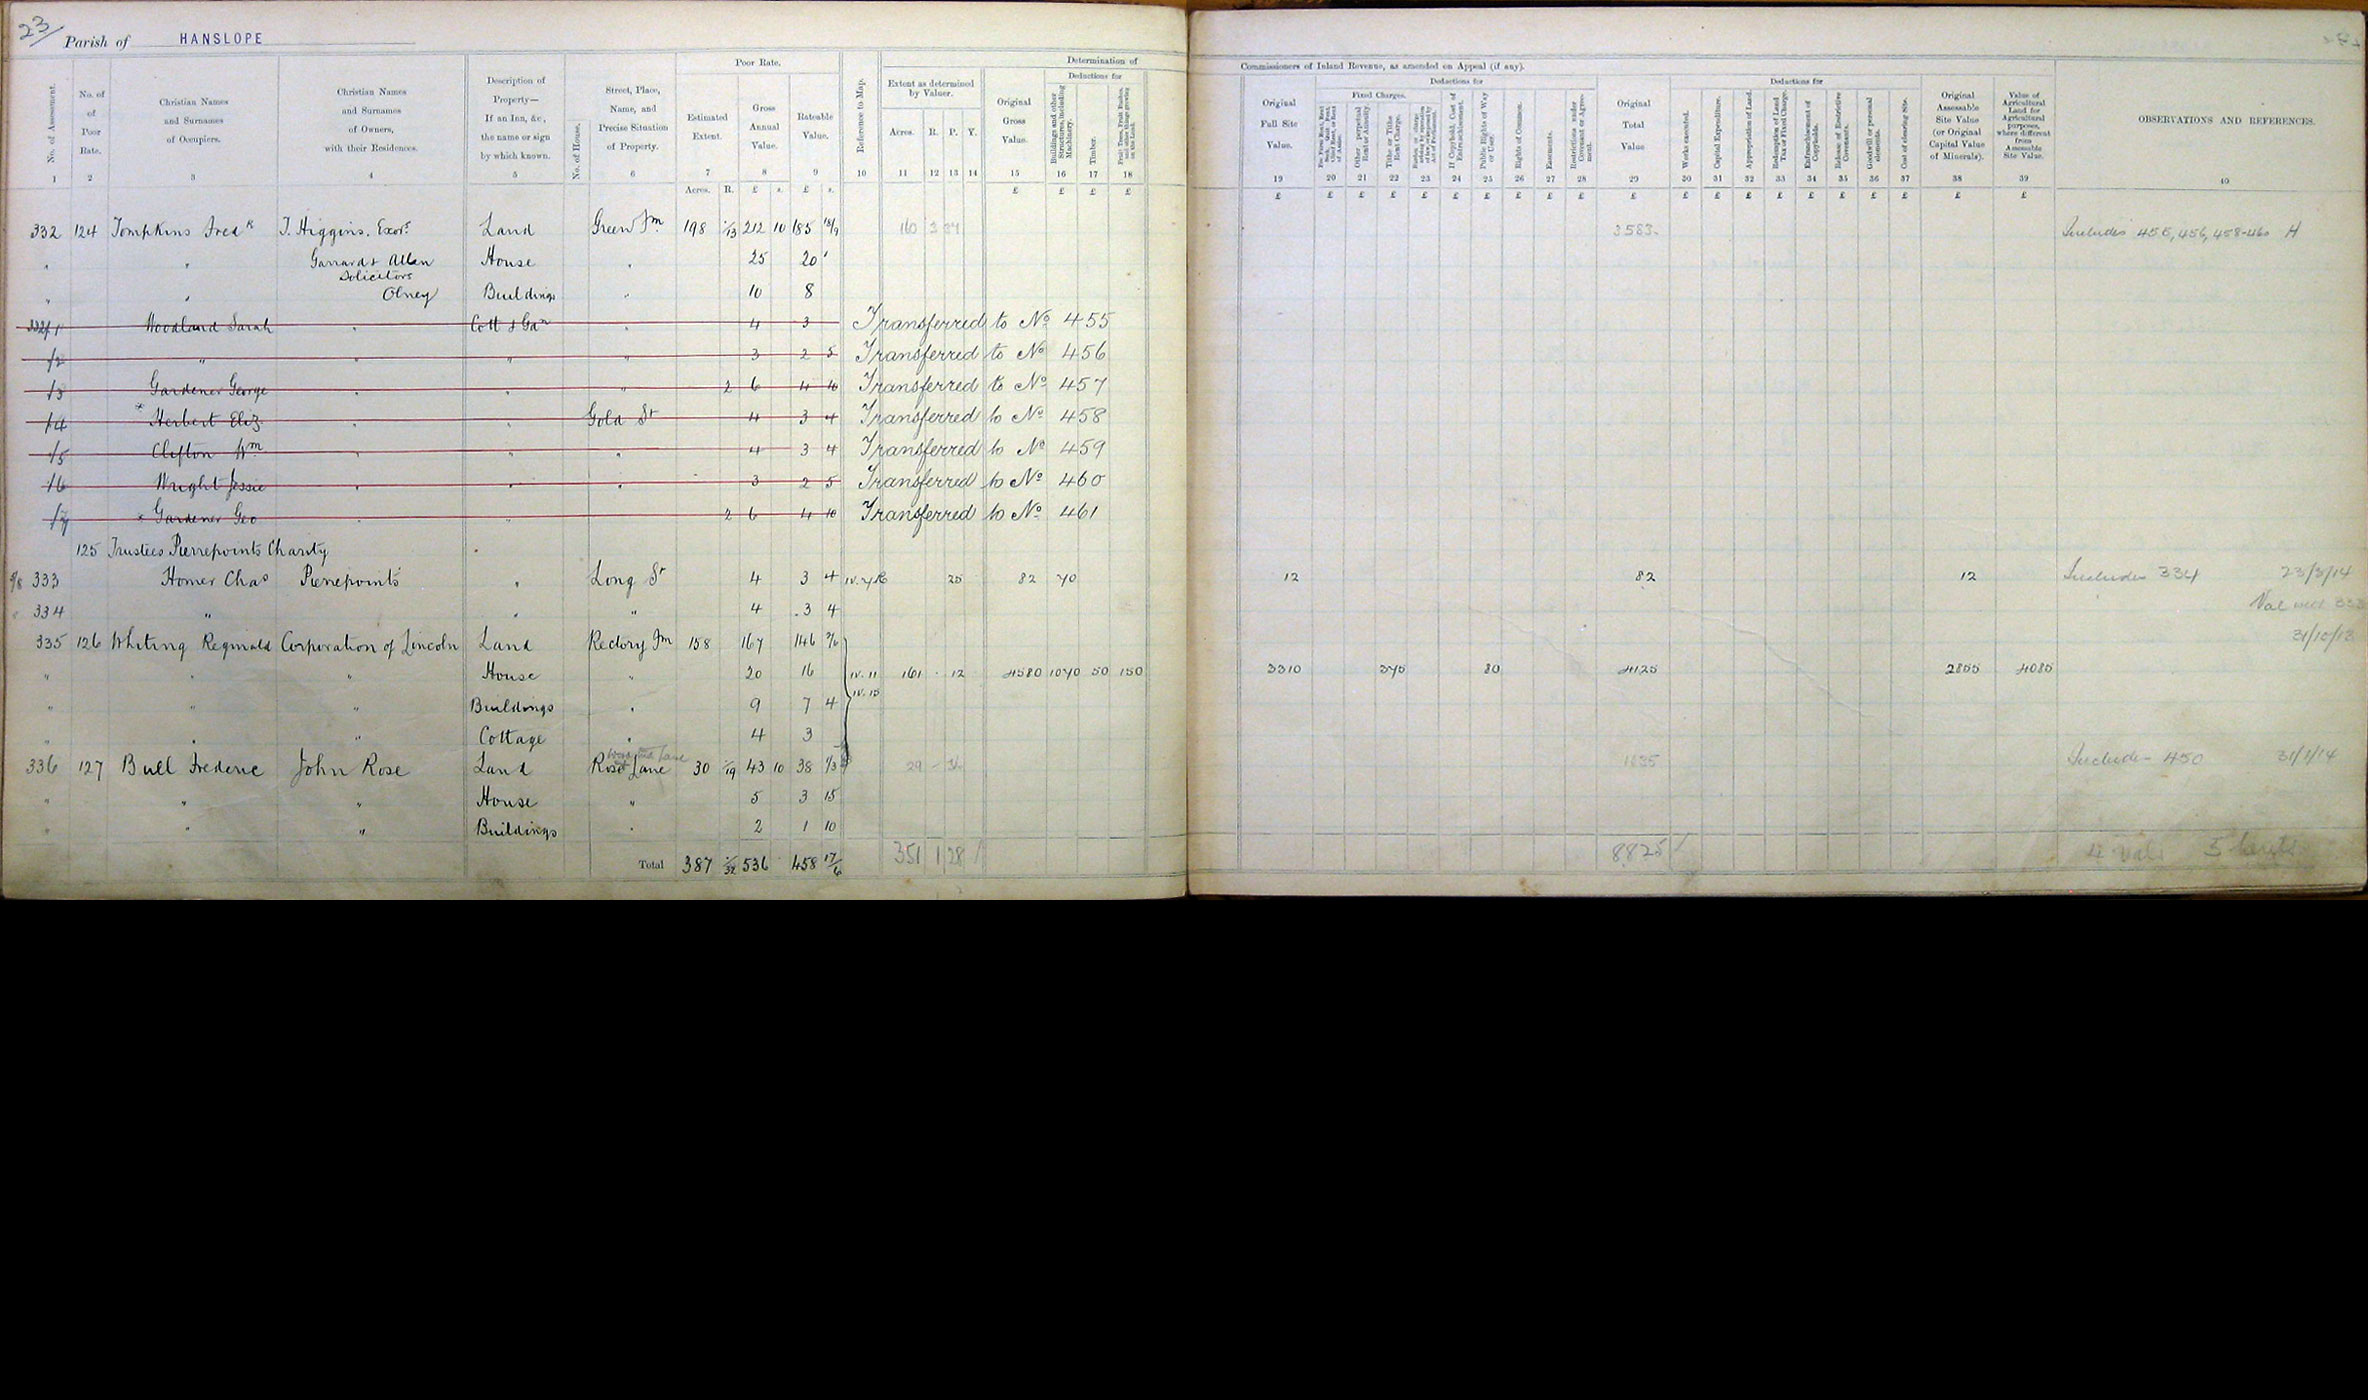 23/ Parish of HANSLOPE
Poor Rate. Determination of Commissioners of Inland Revenue, as amended on Appeal (if any).
No. of Assessment. 1
No. of of Poor Rate. 2
Christian Names and Surnames of Occupiers. 3
Christian Names and Surnames of Owners, with their Residences. 4
Description of Property— If an Inn, &c., the name or sign by which known. 5
No. of House.
Street, Place, Name, and Precise Situation of Property. 6
Estimated Extent. 7 Acres. R.
Gross Annual Value. 8 £ s.
Rateable Value. 9 £ s.
Reference to Map. 10
Extent as determined by Valuer. Acres. R. P. Y. 11 12 13 14
Original Gross Value. 15 £
Deductions for
Buildings and other Structures, including Machinery. 16 £
Timber. 17 £
Fruit Trees, Fruit Bushes, and other things growing on the Land. 18 £
Original Full Site Value. 19 £
Deductions for
Fixed Charges.
20 £
Other perpetual Rent or Annuity. 21 £
Tithe or Tithe Rent Charge. 22 £
23 £
If Copyhold, Cost of Enfranchisement. 24 £
Public Rights of Way or User. 25 £
Rights of Common. 26 £
Easements. 27 £
Restrictions under Covenant or Agreement. 28 £
Original Total Value 29 £
Deductions for
Works executed. 30 £
Capital Expenditure. 31 £
Appropriation of Land. 32 £
Redemption of Land Tax or Fixed Charge. 33 £
Enfranchisement of Copyholds. 34 £
Release of Restrictive Covenants. 35 £
Goodwill or personal elements. 36 £
Cost of clearing Site. 37 £
Original Assessable Site Value (or Original Capital Value of Minerals). 38 £
Value of Agricultural Land for Agricultural purposes, where different from Assessable Site Value. 39 £
OBSERVATIONS AND REFERENCES. 40
332 124 Tompkins Fredk T. Higgins. Exors Land Green Fm 198 212 10 185 18/9 160 3 34 3583 Includes 455, 456, 458-460 H
" " Garrard & Allen House " 25 20
Solicitors
" " Olney Buildings " 10 8
332/1 Woodland Sarah " Cott & Gdn " 4 3 Transferred to No 455
/2 " " " " 3 2 5 Transferred to No 456
/3 Gardener George " " " 2 6 4 10 Transferred to No 457
/4 * Herbert Eliz " " Gold St 4 3 4 Transferred to No 458
/5 Clifton Wm " " " 4 3 4 Transferred to No 459
/6 Wright Jessie " " " 3 2 5 Transferred to No 460
/7 * Gardener Geo " " 2 6 4 10 Transferred to No 461
125 Trustees Pierrepoints Charity "
333 Homer Chas Pierrepoints " Long St 4 3 4 25 82 70 12 82 12 Includes 334 23/3/14
" 334 " " " 4 3 4 Val 333
335 126 Whiting Reginald Corporation of Lincoln Land Rectory Fm 158 167 146 31/10/13
" " " House " 20 16 IV. 11 161 - 12 4580 1070 50 150 3310 375 80 4125 2855 4085
IV. 15
" " " Buildings " 9 7 4
" " " Cottage " 4 3
336 127 Bull Frederic John Rose Land Rose Lane 30 43 10 38 29 - 1/3 1635 Includes 450 31/1/14
" " " House " 5 3 15
" " " Buildings " 2 1 10
Total 387 536 458 17/6 351 1 28 8825 4 vals